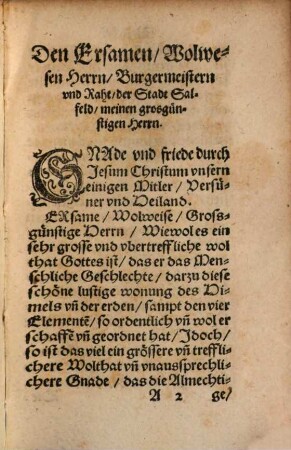 Den Ersamen/ Wolwe-
sen Herrn/ Burgermeistern
vnd Raht/ der Stadt Sal-
feld/ meinen grosgün-
stigen Herrn.
GNAde vnd friede durch
Jesum Christum vnsern
einigen Mitler/ Versü-
ner vnd Heiland.
ERsame/ Wolweise/ Gross-
günstige Herrn/ Wiewol es ein
sehr grosse vnd vbertreffliche wol
that Gottes ist/ das er das Men-
schliche Geschlechte/ darzu diese
schöne lustige wonung des Hi-
mels vn̄ der erden/ sampt den vier
Elementē/ so ordentlich vn̄ wol er
schaffē vn̄ geordnet hat/ Jdoch/
so ist das viel ein grössere vn̄ treffli-
chere Wolthat vn̄ vnaussprechli-
chere Gnade/ das die Almechti-
A 2 ge/